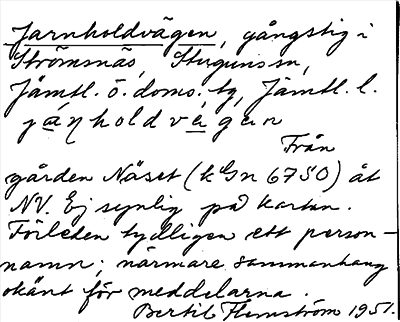 Jarnholdvägen, gångstig i
Strömsnäs, Stugun sn,
Jämtl. ö. doms. tg, Jämtl. l.
jáṇholdvégan
Från
gården Näset (k Gn 6750) åt
NV. Ej synlig på kartan.
Förleden tydligen ett person-
namn; närmare sammanhang
okänt för meddelarna.
Bertil Flemström 1951.